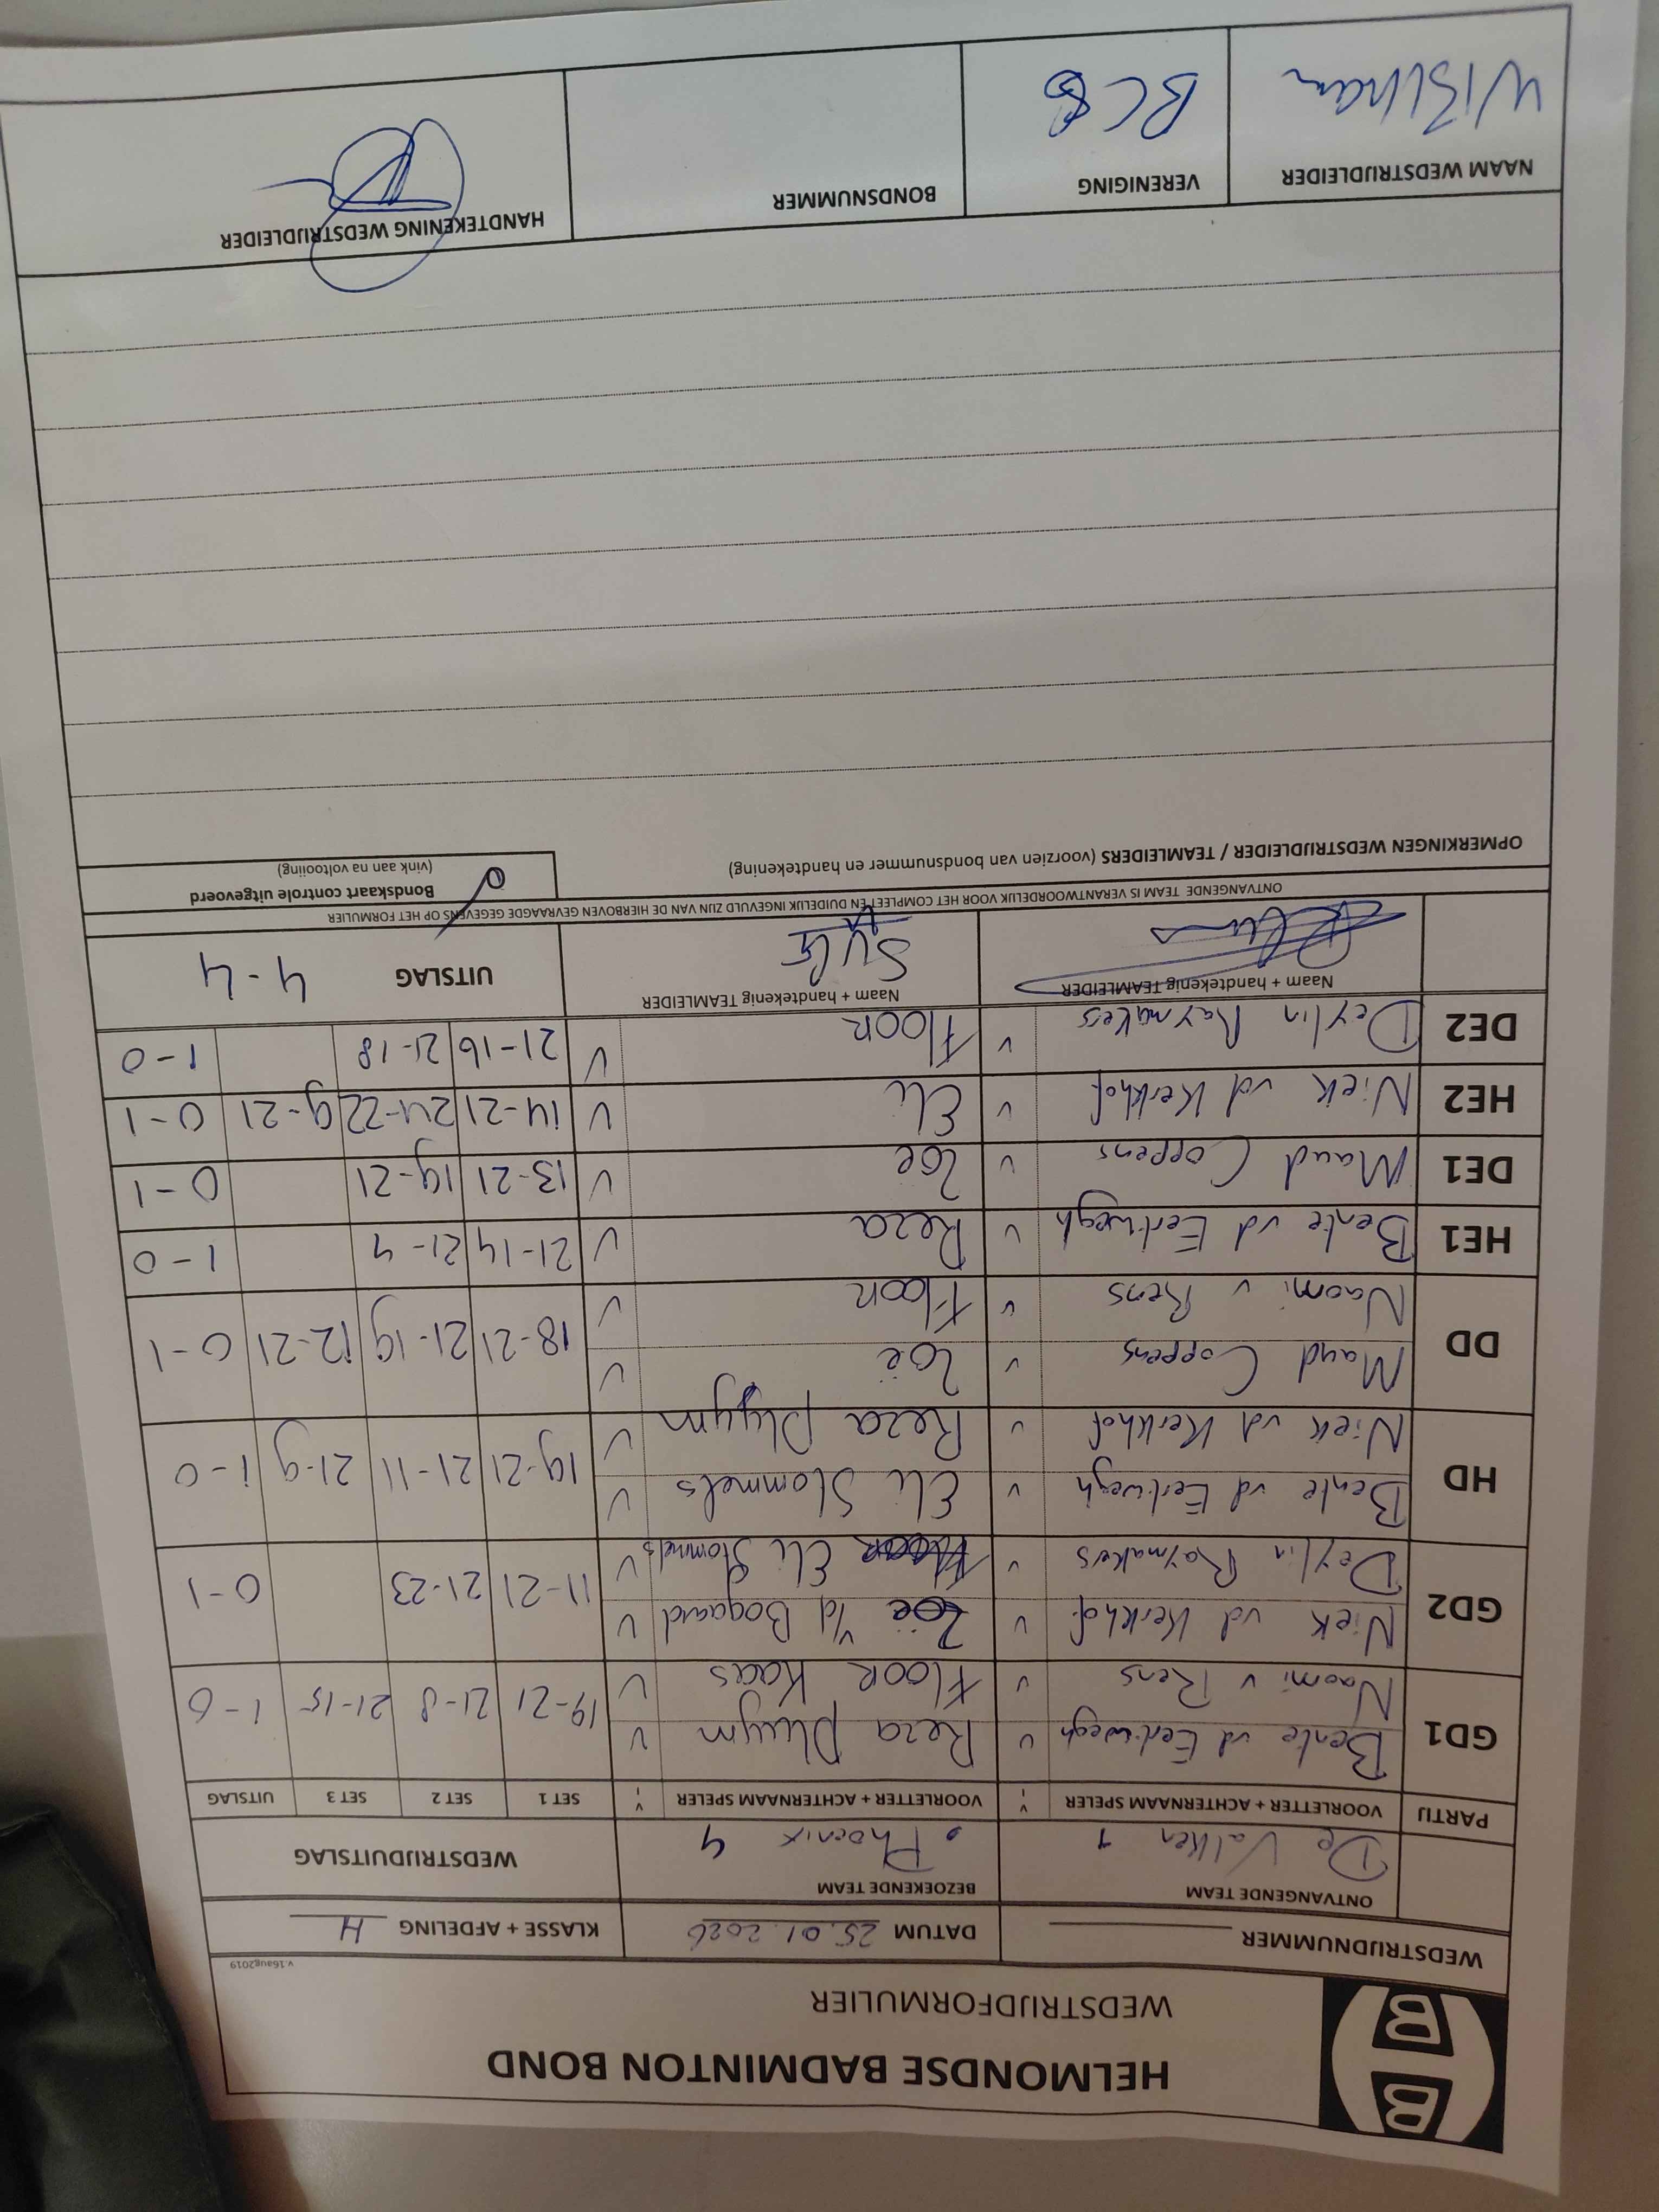 HELMONDSE BADMINTON BOND
WEDSTRIJDFORMULIER
v.16aug2019
WEDSTRIJDNUMMER DATUM 25.01.2026 KLASSE + AFDELING H
ONTVANGENDE TEAM BEZOEKENDE TEAM WEDSTRIJDUITSLAG
De Valken 1 Phoenix 4
PARTIJ VOORLETTER + ACHTERNAAM SPELER V VOORLETTER + ACHTERNAAM SPELER V SET 1 SET 2 SET 3 UITSLAG
GD1 Bente vd Eertwegh V Reza Pluym V 19-21 21-8 21-15 1-0
Naomi v Rens V Floor Kaas V
GD2 Niek vd Kerkhof V Zoë v/d Bogaard V 11-21 21-23 0-1
Deylin Raymakers V Eli Stommels V
HD Bente vd Eertwegh V Eli Stommels V 19-21 21-11 21-9 1-0
Niek vd Kerkhof V Reza Pluym V
DD Maud Coppens V Zoë V 18-21 21-19 12-21 0-1
Naomi v Rens V Floor V
HE1 Bente vd Eertwegh V Reza V 21-14 21-4 1-0
DE1 Maud Coppens V Zoë V 13-21 19-21 0-1
HE2 Niek vd Kerkhof V Eli V 14-21 24-22 9-21 0-1
DE2 Deylin Raymakers V Floor V 21-16 21-18 1-0
Naam + handtekenig TEAMLEIDER Naam + handtekenig TEAMLEIDER UITSLAG 4-4
ONTVANGENDE TEAM IS VERANTWOORDELIJK VOOR HET COMPLEET EN DUIDELIJK INGEVULD ZIJN VAN DE HIERBOVEN GEVRAAGDE GEGEVENS OP HET FORMULIER
OPMERKINGEN WEDSTRIJDLEIDER / TEAMLEIDERS (voorzien van bondsnummer en handtekening)
Bondskaart controle uitgevoerd
(vink aan na voltooiing)
NAAM WEDSTRIJDLEIDER VERENIGING BONDSNUMMER HANDTEKENING WEDSTRIJDLEIDER
BC8